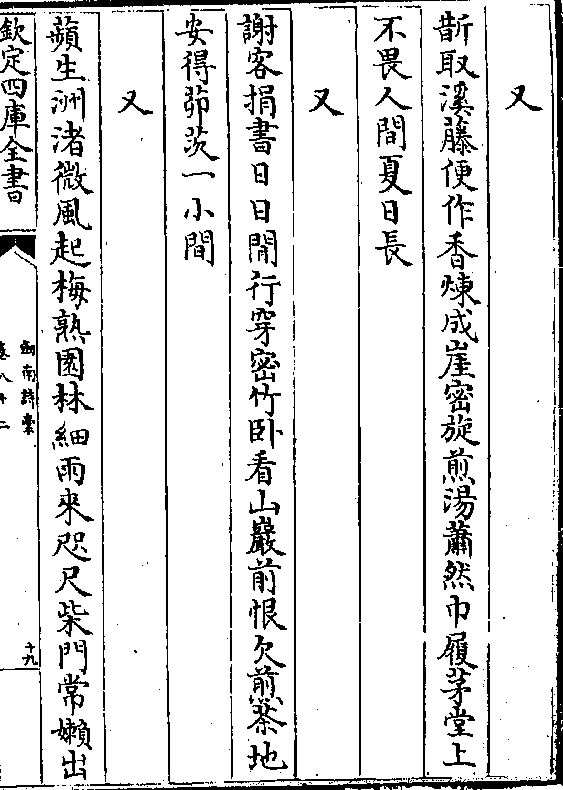 又
斮取溪藤便作香煉成崖密旋煎湯蕭然巾履茅堂上
不畏人間夏日長
又
謝客捐書日日閒行穿密竹卧看山巖前恨欠煎茶地
安得茆茨一小間
又
蘋生洲渚微風起梅熟園林細雨來咫尺柴門常嬾出
欽定四庫全書
劍南詩槀
卷八十二
十九